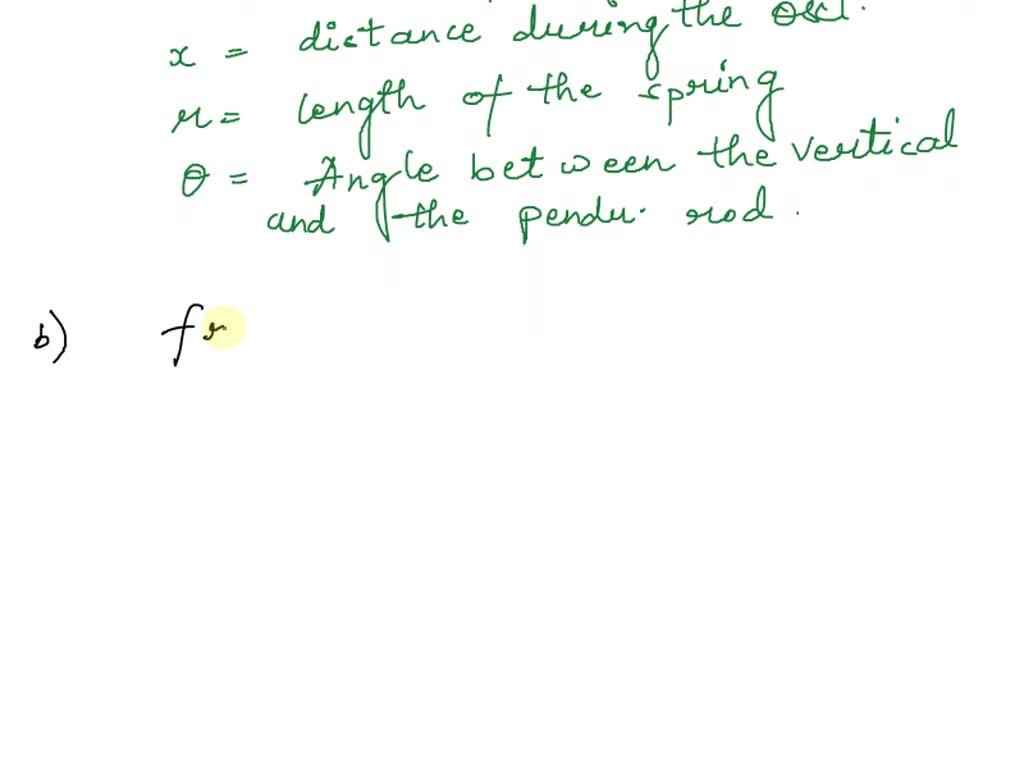 x = distance during the oscl.
r = length of the spring
θ = Angle between the vertical
and the pendu. rod.
b) fr